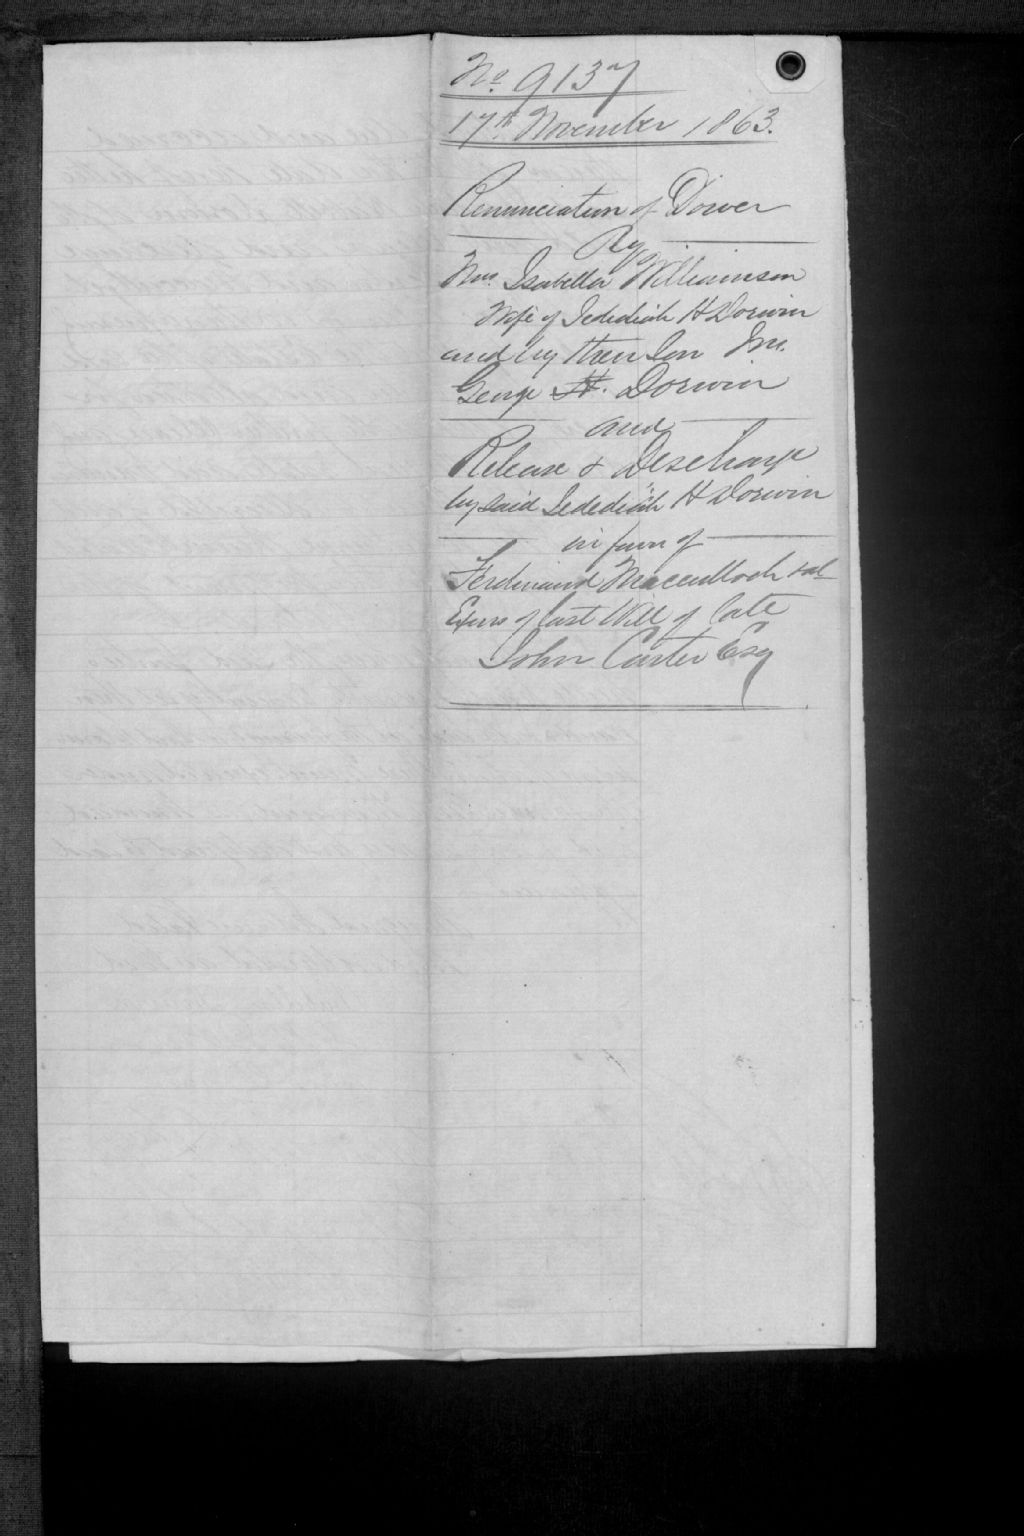 No. 9137
17th November 1863.
Renunciation of Dower
By
Mrs. Isabella Williamson
Wife of Jedediah H Dorwin
and by their Son
George H. Dorwin
and
Release & Discharge
by said Jedediah H Dorwin
in favor of
Ferdinand Macculloch & al
Exors of Last Will of late
John Carter Esq